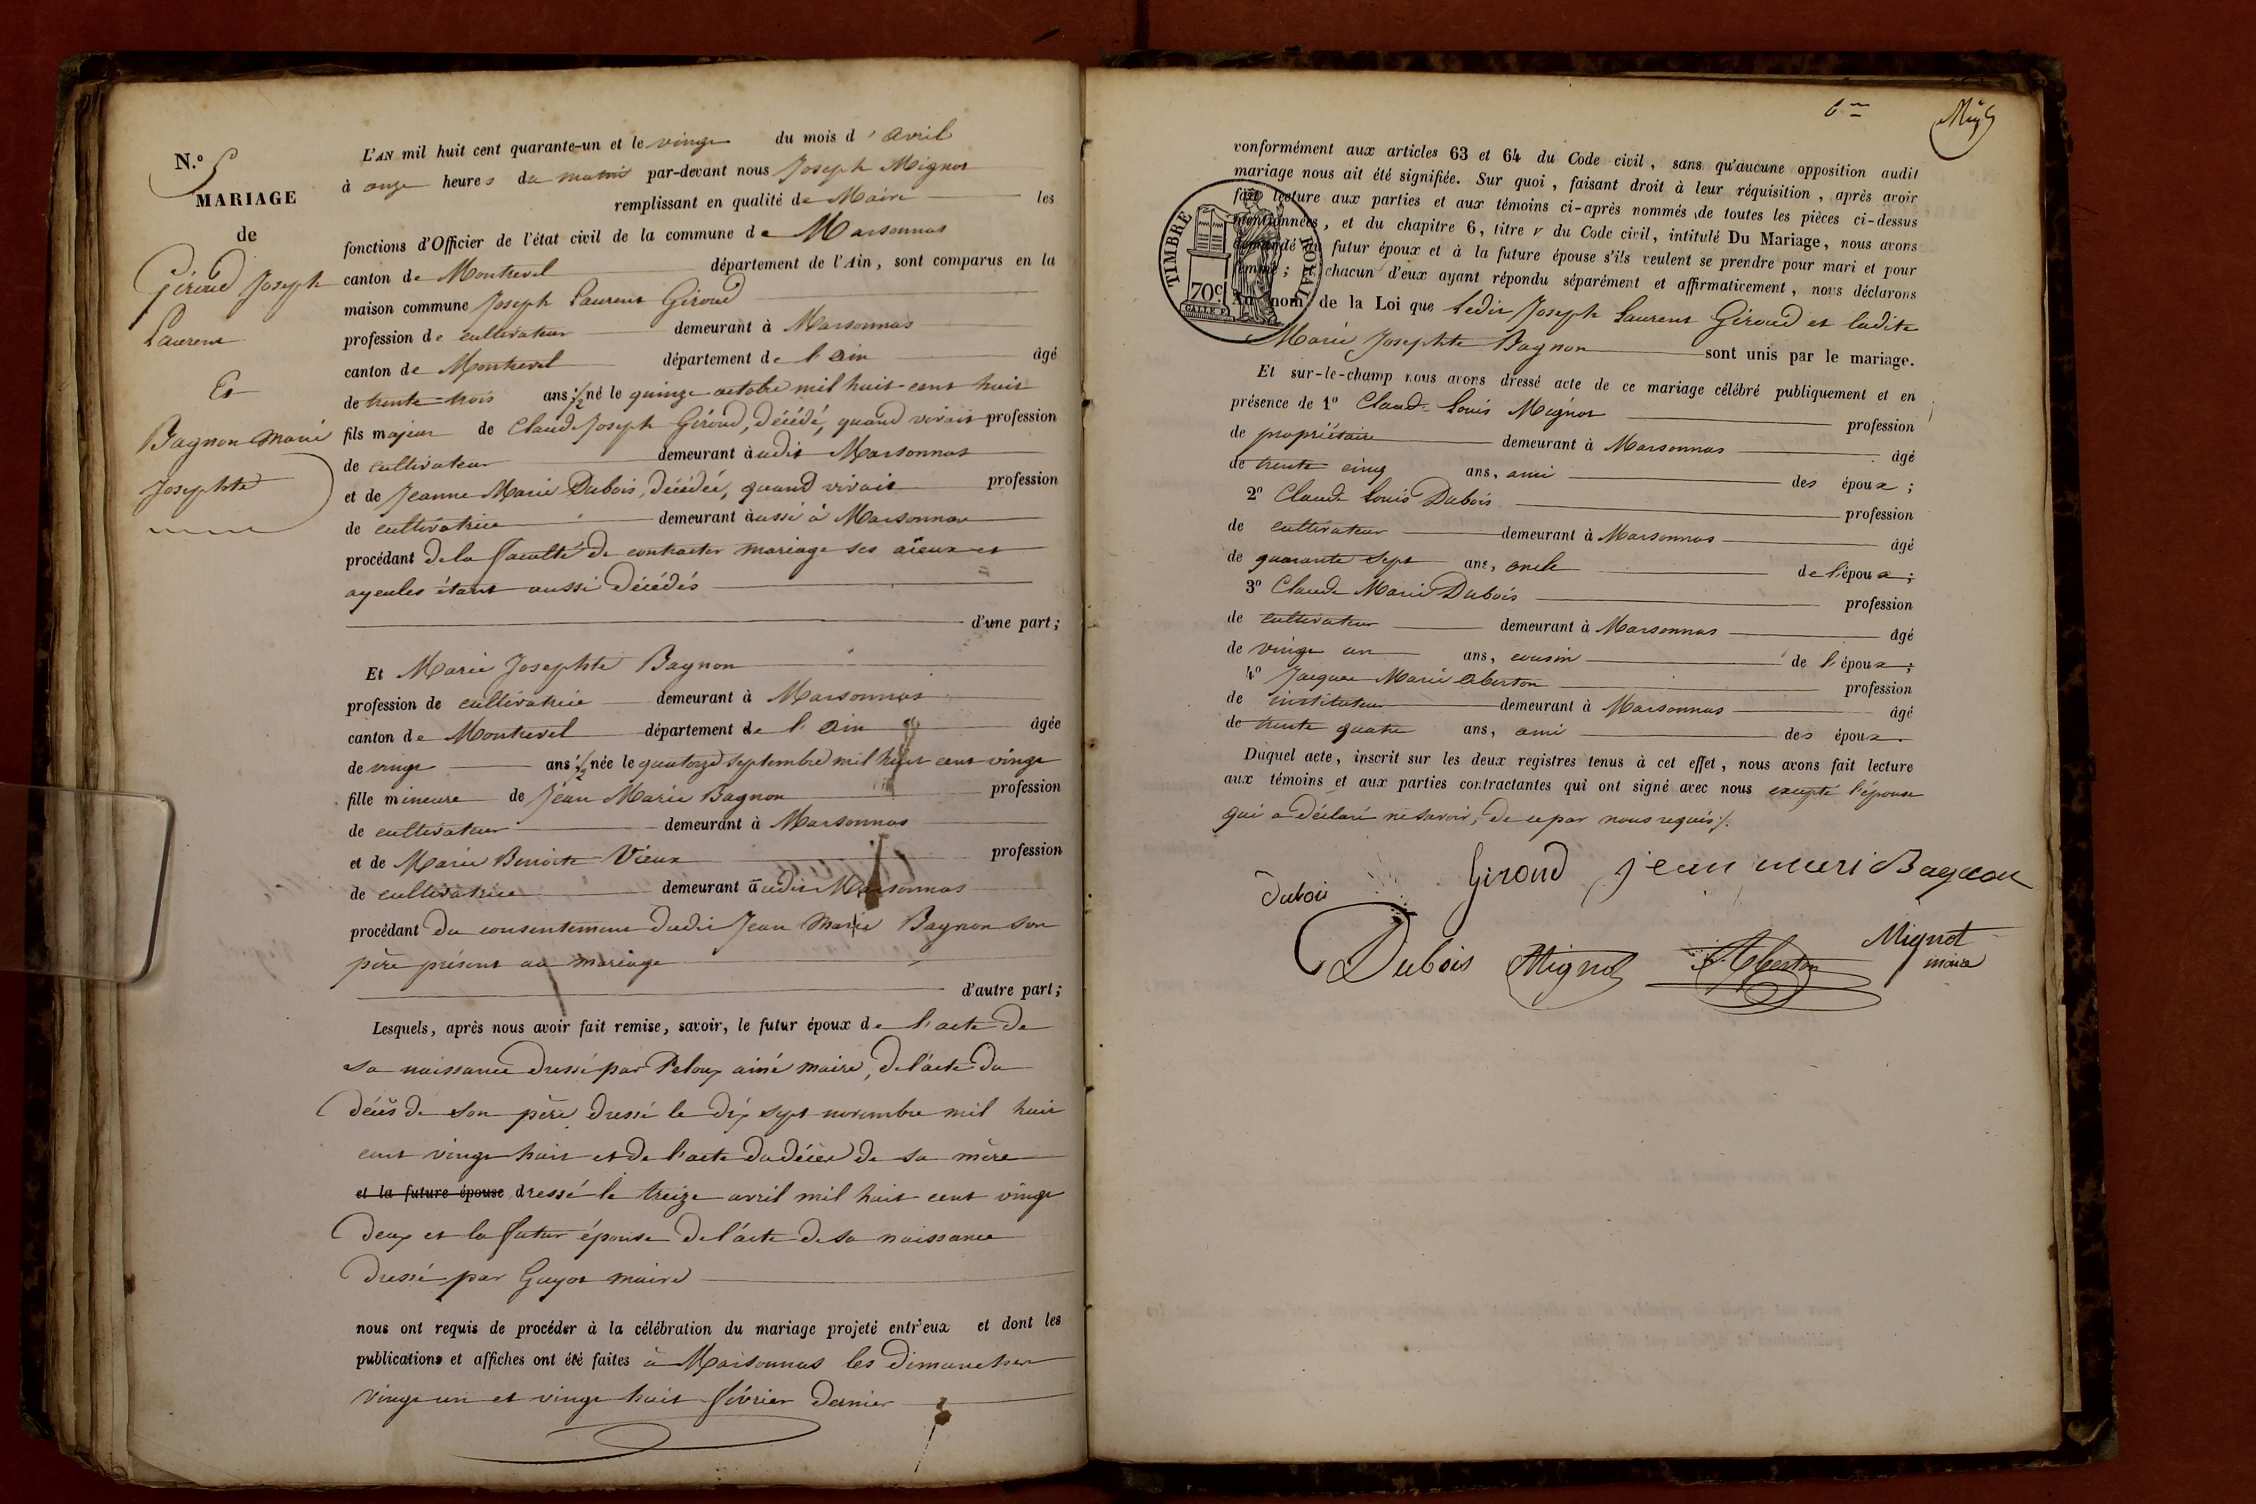 N.º 5
MARIAGE
de
Giroud Joseph
Laurent
Et
Bagnon Marie
Josephte
L'AN mil huit cent quarante-un et le vingt du mois d'avril
à onze heures du matin par-devant nous Joseph Mignot
remplissant en qualité de Maire les
fonctions d'Officier de l'état civil de la commune de Marsonnas
canton de Montrevel département de l'Ain, sont comparus en la
maison commune Joseph Laurent Giroud
profession de cultivateur demeurant à Marsonnas
canton de Montrevel département de l'Ain âgé
de trente-trois ans 1/2 né le quinze octobre mil huit cent huit
fils majeur de Claude Joseph Giroud, décédé, quand vivait profession
de cultivateur demeurant audit Marsonnas
et de Jeanne Marie Dubois, décédée, quand vivait profession
de cultivatrice demeurant aussi à Marsonnas
procédant de la faculté de contracter mariage ses aïeux et
ayeules étant aussi décédés
d'une part;
Et Marie Josephte Bagnon
profession de cultivatrice demeurant à Marsonnas
canton de Montrevel département de l'Ain âgée
de vingt ans 1/2 née le quatorze septembre mil huit cent vingt
fille mineure de Jean Marie Bagnon profession
de cultivateur demeurant à Marsonnas
et de Marie Benoite Vieux profession
de cultivatrice demeurant audit Marsonnas
procédant du consentement dudit Jean Marie Bagnon son
père présent au mariage
d'autre part;
Lesquels, après nous avoir fait remise, savoir, le futur époux de l'acte de
sa naissance dressé par Peloux ainé maire, de l'acte du
décès de son père dressé le dix sept novembre mil huit
cent vingt huit et de l'acte du décès de sa mère
et la future épouse dressé le treize avril mil huit cent vingt
deux et la futur épouse de l'acte de sa naissance
dressé par Guyot maire
nous ont requis de procéder à la célébration du mariage projeté entr'eux et dont les
publications et affiches ont été faites à Marsonnas les dimanches
vingt un et vingt huit février dernier
6me
conformément aux articles 63 et 64 du Code civil, sans qu'aucune opposition audit
mariage nous ait été signifiée. Sur quoi, faisant droit à leur réquisition, après avoir
fait lecture aux parties et aux témoins ci-après nommés, de toutes les pièces ci-dessus
mentionnées, et du chapitre 6, titre V du Code civil, intitulé Du Mariage, nous avons
demandé au futur époux et à la future épouse s'ils veulent se prendre pour mari et pour
femme; et chacun d'eux ayant répondu séparément et affirmativement, nous déclarons
Au nom de la Loi que ledit Joseph Laurent Giroud et ladite
TIMBRE ROYAL
70c
Marie Josephte Bagnon sont unis par le mariage.
Et sur-le-champ nous avons dressé acte de ce mariage célébré publiquement et en
présence de 1º Claude Louis Mignot profession
de propriétaire demeurant à Marsonnas âgé
de trente cinq ans, ami des époux;
2º Claude Louis Dubois profession
de cultivateur demeurant à Marsonnas âgé
de quarante sept ans, oncle de l'époux;
3º Claude Marie Dubois profession
de cultivateur demeurant à Marsonnas âgé
de vingt un ans, cousin de l'époux;
4º Jacques Marie Aberton profession
de instituteur demeurant à Marsonnas âgé
de trente quatre ans, ami des époux.
Duquel acte, inscrit sur les deux registres tenus à cet effet, nous avons fait lecture
aux témoins et aux parties contractantes qui ont signé avec nous excepté l'épouse
qui a déclaré ne savoir, de ce par nous requis
Giroud jean mari Bagnon
Dubois
Dubois Mignot Aberton Mignot
maire